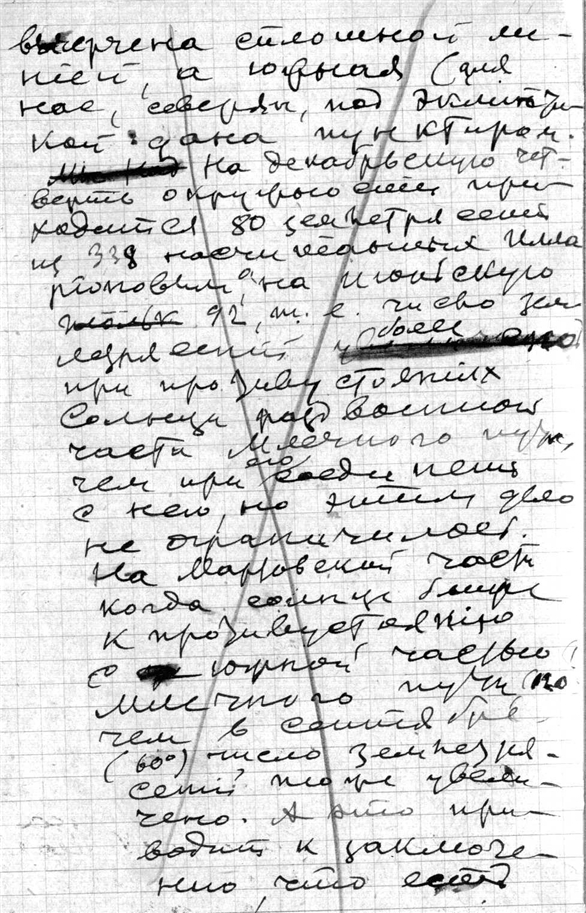 вычерчена сплошной ли-
нией, а южная (для
нас, северян, под эклипти-
кой дана пунктиром.
На декабрьскую чет-
верть окружности при-
ходится 80 землетрясений
из 338 насчитанных
на июньскую
только 92, т. е. число зем
летрясений более
при противустояниях
Солнца раздвоенной
части Млечного пути,
чем при его соединении
с нею, но этим дело
не ограничилось.
На Мартовской части
когда солнце ближе
к противустоянию
с южной частью
млечного пути (120
чем в сентябре
(60°) число землетря-
сений тоже увели-
чено. А это при-
водит к заключе-
нию, что